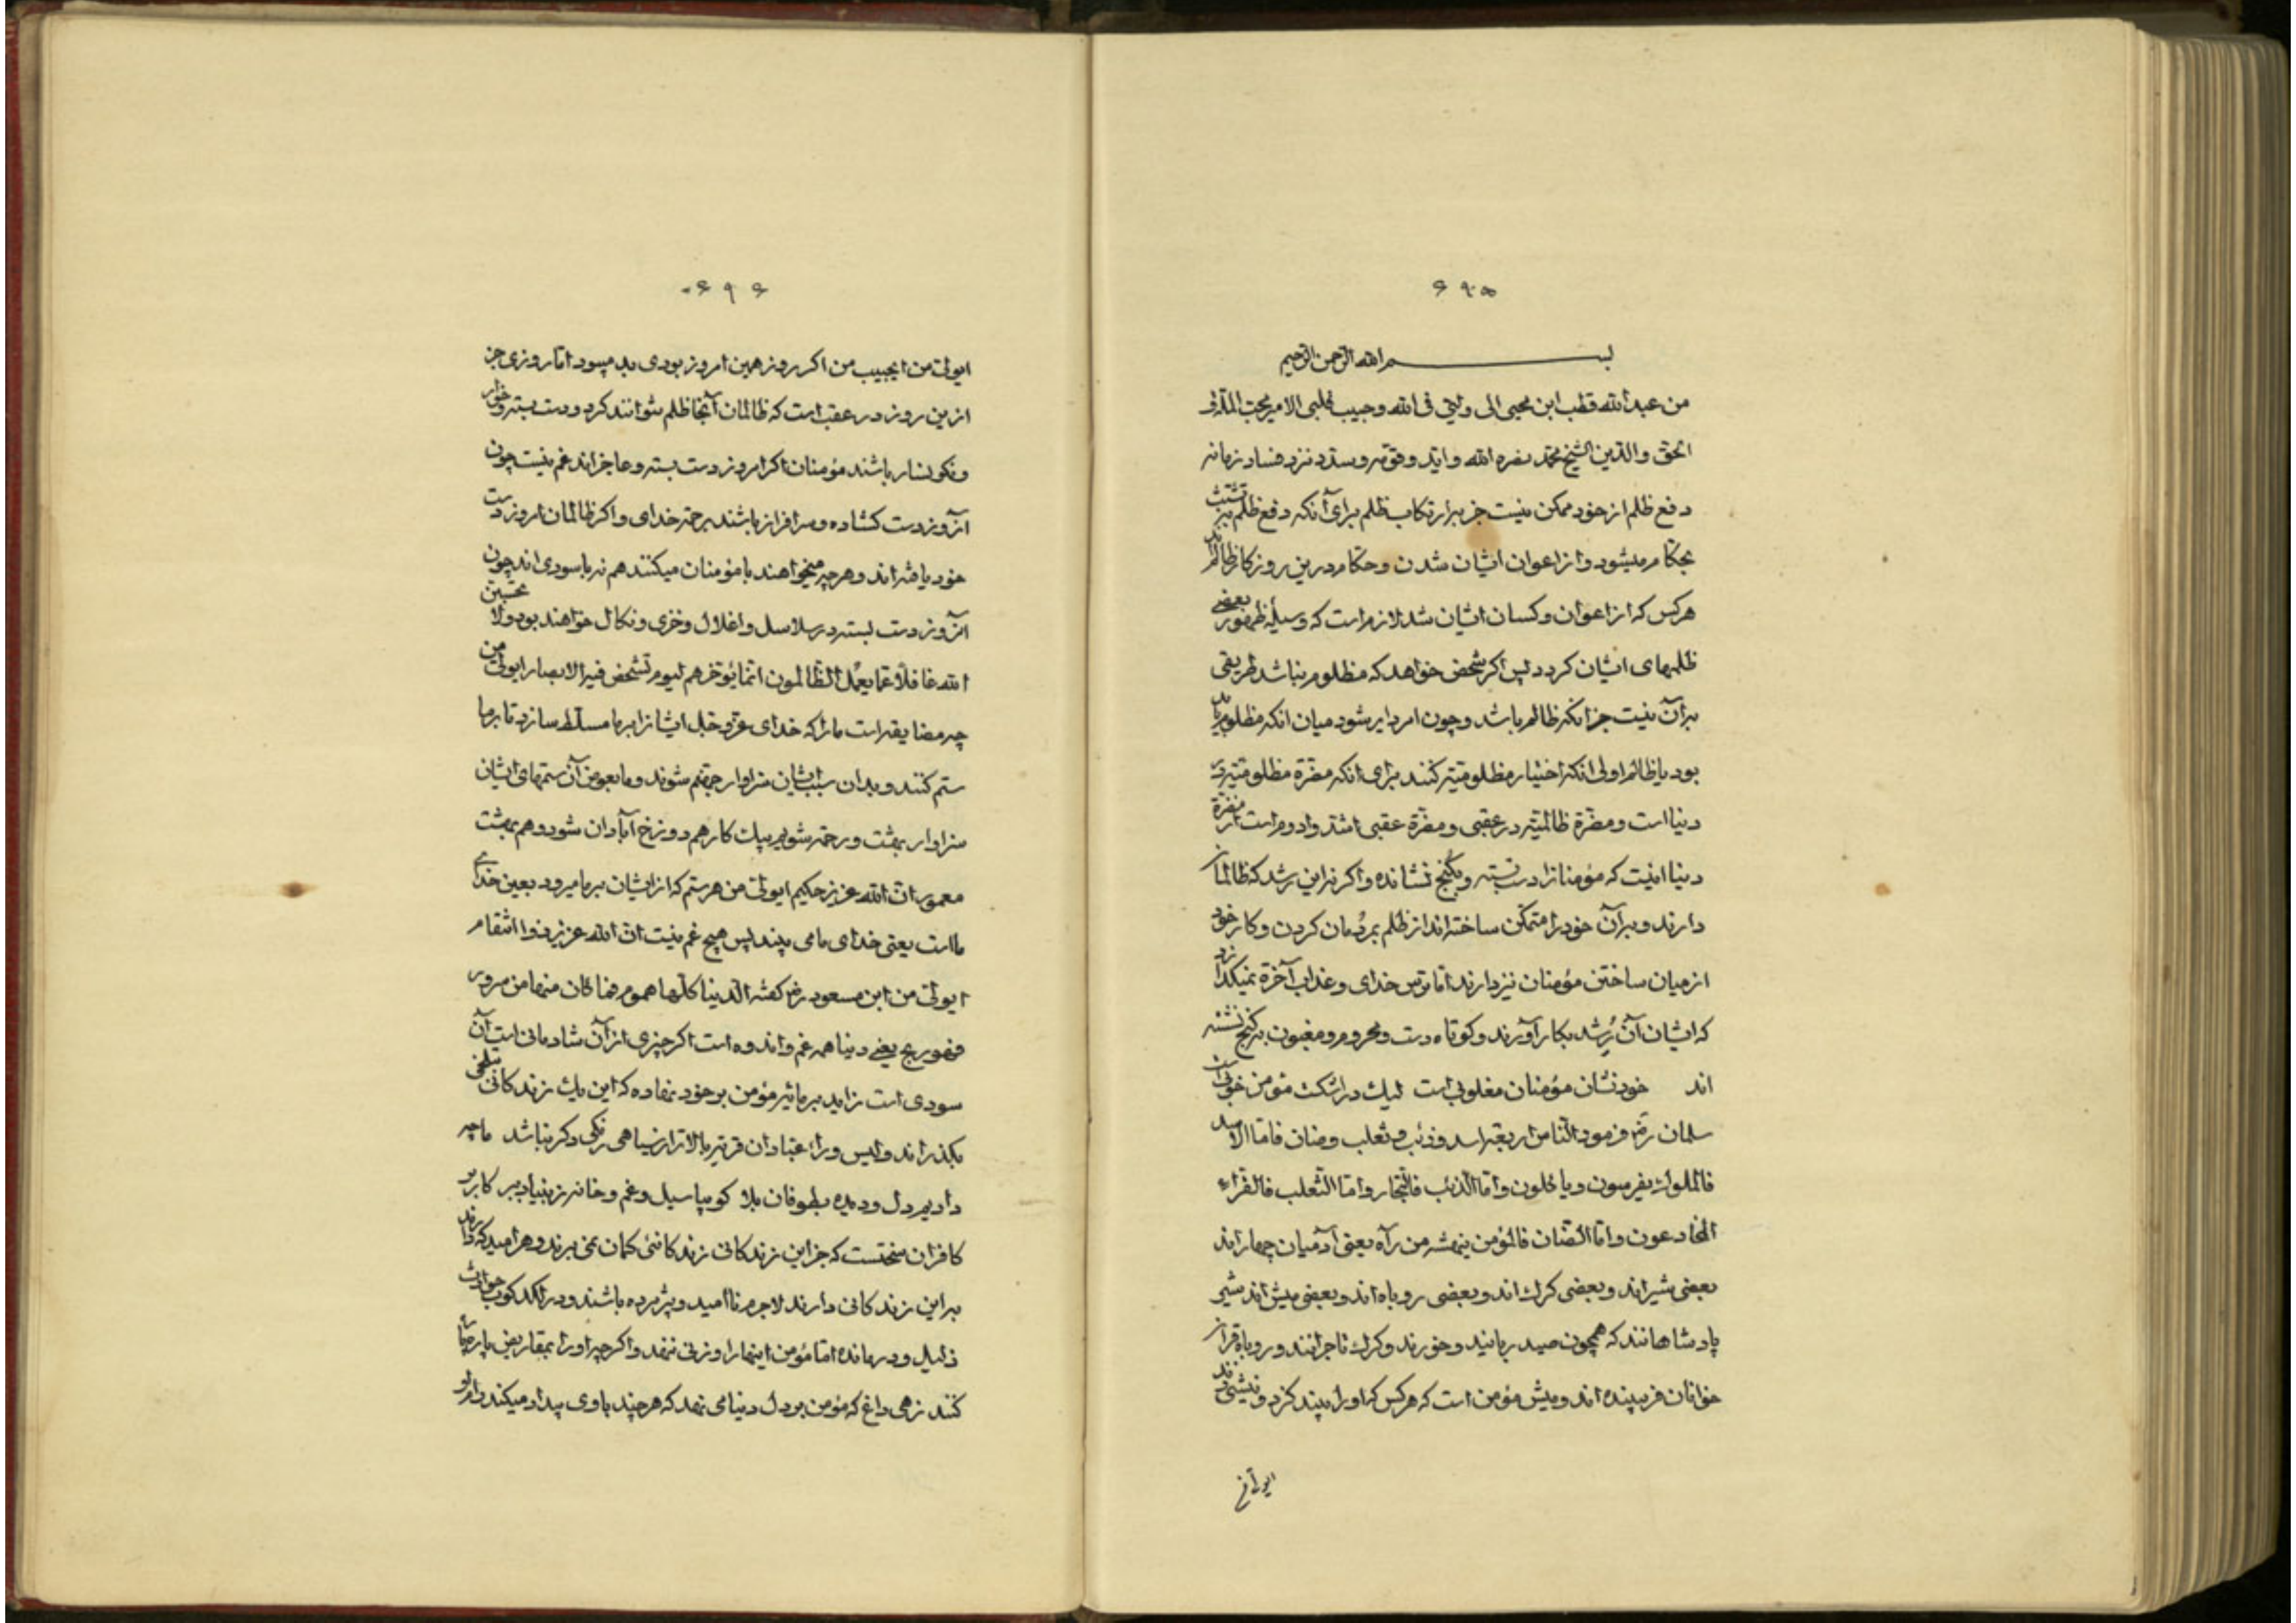 ۶۹۵
بسم الله الرحمن الرحیم
من عبد الله قطب ابن محیی الی ولیّی فی الله وحبیب قلبی الامیر محب الملة و
الحق والدین الشیخ محمد نصره الله وایّده ووقته وسدّد نزد فساد زمانه
دفع ظلم از خود ممکن نیست جز بارتکاب ظلم برای آنکه دفع ظلم بتشبث
بحکام میشود واز اعوان ایشان شدن وحکام درین روزکار ظالم‌اند
هرکس که از اعوان وکسان ایشان شد لازم است که وسیلهٔ ظهور بعضی
ظلمهای ایشان کردد پس اکر شخص خواهد که مظلوم نباشد طریقی
برآن نیست جز انکه ظالم باشد وچون امر دایر شود میان انکه مظلوم باید
بود یا ظالم اولی انکه اختیار مظلومیّت کنند برای انکه مضرّة مظلومیّت در
دنیا است ومضرّة ظالمیّت در عقبی ومضرّة عقبی اشدّ وادوم است از مضرّة
دنیا اینست که مؤمنانرا دست بسته وبکنج نشانده واکر نه این رشد که ظالمان
دارند وبرآن خود را متمکّن ساخته‌اند از ظلم بمردمان کردن وکار خود
از میان ساختن مؤمنان نیز دارند امّا ترس خدای وعذاب آخرة نمیکذارد
که ایشان آن رُشد بکار آورند وکوتاه دست ومحروم ومغبون بکنج نشسته
اند خود نشان مؤمنان مغلوبی است لیک در اشکست مؤمن خوبی است
سلمان رضـ فرمود الناس اربعة اسد وذئب وثعلب وضان فامّا الاسد
فالملوک یفرسون ویاکلون وامّا الذئب فالتجّار وامّا الثعلب فالقرّاء
المخادعون وامّا الضّان فالمؤمن ینهشه من رآه یعنی آدمیان چهاراند
بعضی شیراند وبعضی کرک‌اند وبعضی روباه‌اند وبعضی میش‌اند شیر
پادشاهانند که همچون صید ربایند وخورند وکرک تاجرانند وروباه قرآن
خوانان فریبنده‌اند ومیش مؤمن است که هرکس که او را بیند کزد ونیشی زند
ایولیّ من
۶۹۶
ایولیّ من ایحبیب من اکر روز همین امروز بودی بد میبود امّا روزی جز
ازین روز در عقب است که ظالمان آنجا ظلم نتوانند کرد ودست بسته وخوار
ونکونسار باشند مؤمنان اکر امروز دست بسته وعاجزاند غم نیست چون
آنروز دست کشاده وسرافراز باشند برحمة خدای واکر ظالمان امروز دست
خود یافته‌اند وهرچه میخواهند با مؤمنان میکنند هم نه باسودی‌اند چون
آنروز دست بسته در سلاسل واغلال وخزی ونکال خواهند بود ولا تحسبنّ
الله غافلاً عمّا یعمل الظّالمون انّما یؤخّرهم لیوم تشخص فیه الابصار ایولیّ من
چه مضایقه است ما را که خدای عزّ وجلّ ایشانرا بر ما مسلّط سازد تا بر ما
ستم کنند وبدان سبب ایشان سزاوار جهنّم شوند وما بعوض آن ستمهای ایشان
سزاوار بهشت ورحمة شویم بیک کار هم دوزخ آبادان شود وهم بهشت
معمور انّ الله عزیز حکیم ایولیّ من هر ستم که از ایشان بر ما میرود بعین خدای
ما است یعنی خدای ما می بیند پس هیچ غم نیست انّ الله عزیز ذو انتقام
ایولیّ من ابن مسعود رضـ کفته الدنیا کلّها هموم فما کان منها من سرور
فهو ربح یعنی دنیا همه غم واندوه است اکر چیزی از آن شادمانی است آن
سودی است زاید بر مایه مؤمن بر خود نهاده که این یک زندکانی بتلخی
بکذراند وایس وراء عبّادان قریه بالاتر از سیاهی رنکی دکر نباشد ما چه
دادیم دل ودیده بطوفان بلا کو بیا سیل وغم وخانه ز بنیاد ببر کار بر
کافران سختست که جز این زندکانی زندکانئی کمان نمی برند وهر امید که دارند
بر این زندکانی دارند لاجرم ناامید وپژمرده باشند ودر لکدکوب حوادث
ذلیل ودرمانده امّا مؤمن اینها را وزنی ننهد واکرچه او را بمقاریض پاره پاره
کنند زهی داغ که مؤمن بر دل دنیا می نهد که هرچند با وی بیداد میکند